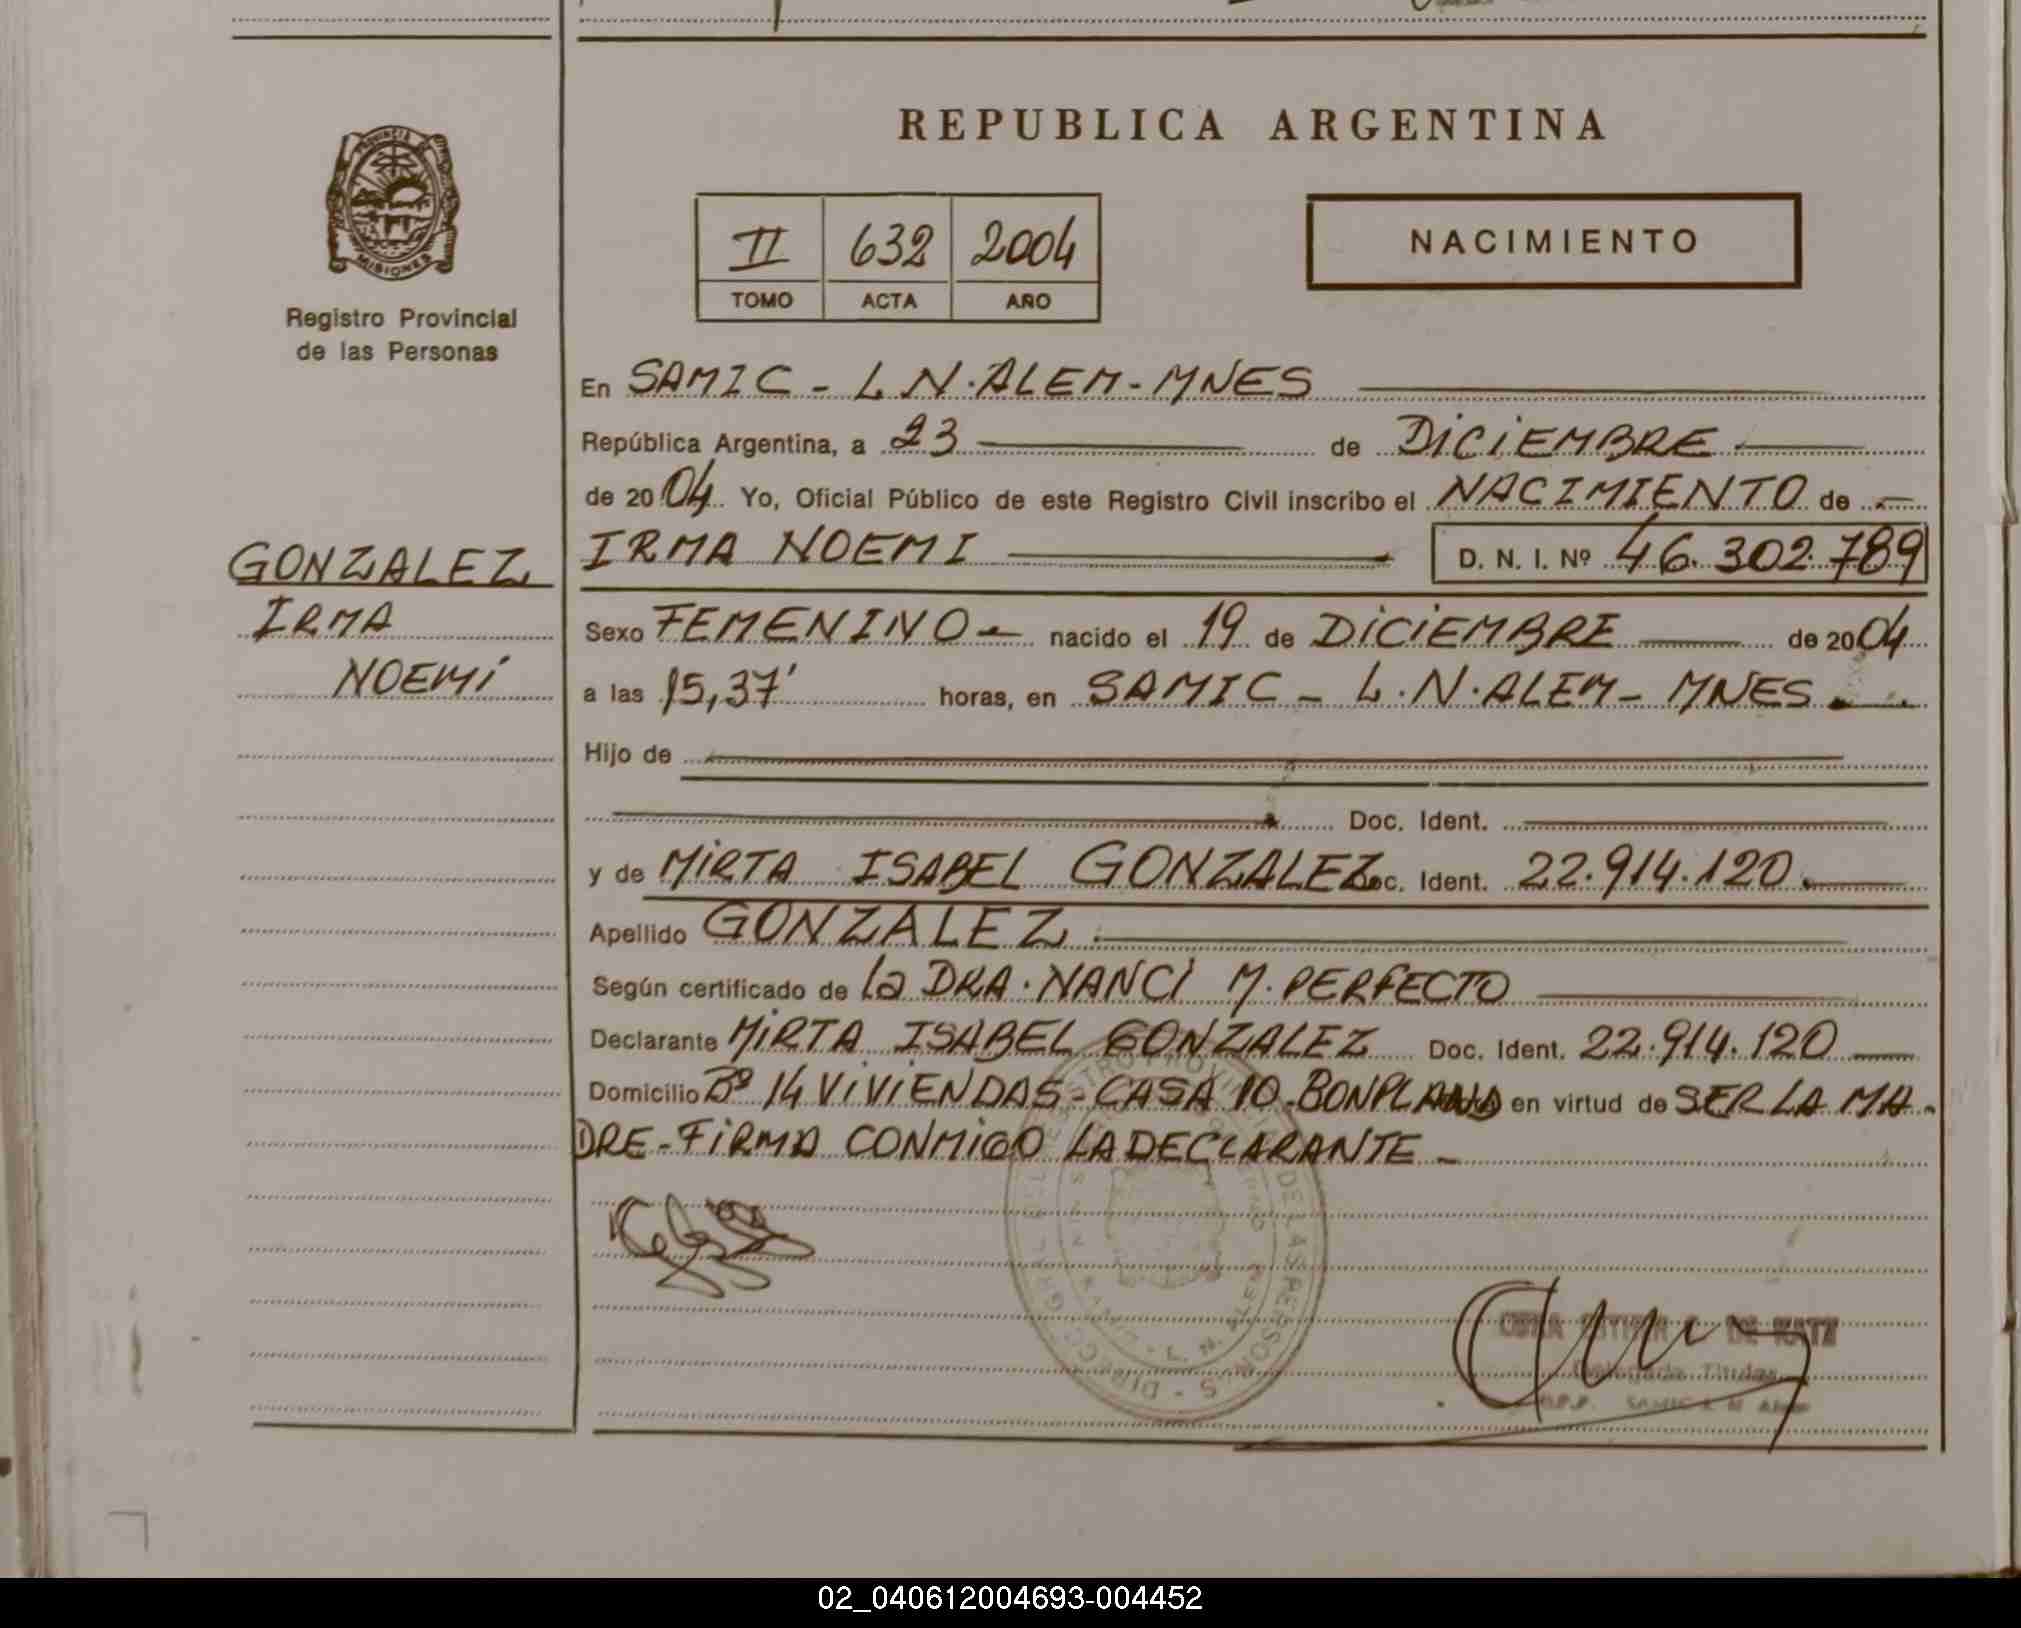 REPUBLICA ARGENTINA
PROVINCIA DE
MISIONES
Registro Provincial
de las Personas
II 632 2004
TOMO ACTA AÑO
NACIMIENTO
En SAMIC - L.N.ALEM - MNES
República Argentina, a 23 de DICIEMBRE
de 2004 Yo, Oficial Público de este Registro Civil inscribo el NACIMIENTO de
IRMA NOEMI D. N. I. Nº 46.302.789
GONZALEZ
IRMA
NOEMÍ
Sexo FEMENINO nacido el 19 de DICIEMBRE de 2004
a las 15,37' horas, en SAMIC - L.N.ALEM - MNES
Hijo de
Doc. Ident.
y de MIRTA ISABEL GONZALEZ Doc. Ident. 22.914.120.
Apellido GONZALEZ
Según certificado de la DRA. NANCI M. PERFECTO
Declarante MIRTA ISABEL GONZALEZ Doc. Ident. 22.914.120
Domicilio Bº 14 VIVIENDAS - CASA 10 - BONPLAND en virtud de SER LA MA-
DRE - FIRMA CONMIGO LA DECLARANTE -
DE KATZ
Delegada Titular
02_040612004693-004452